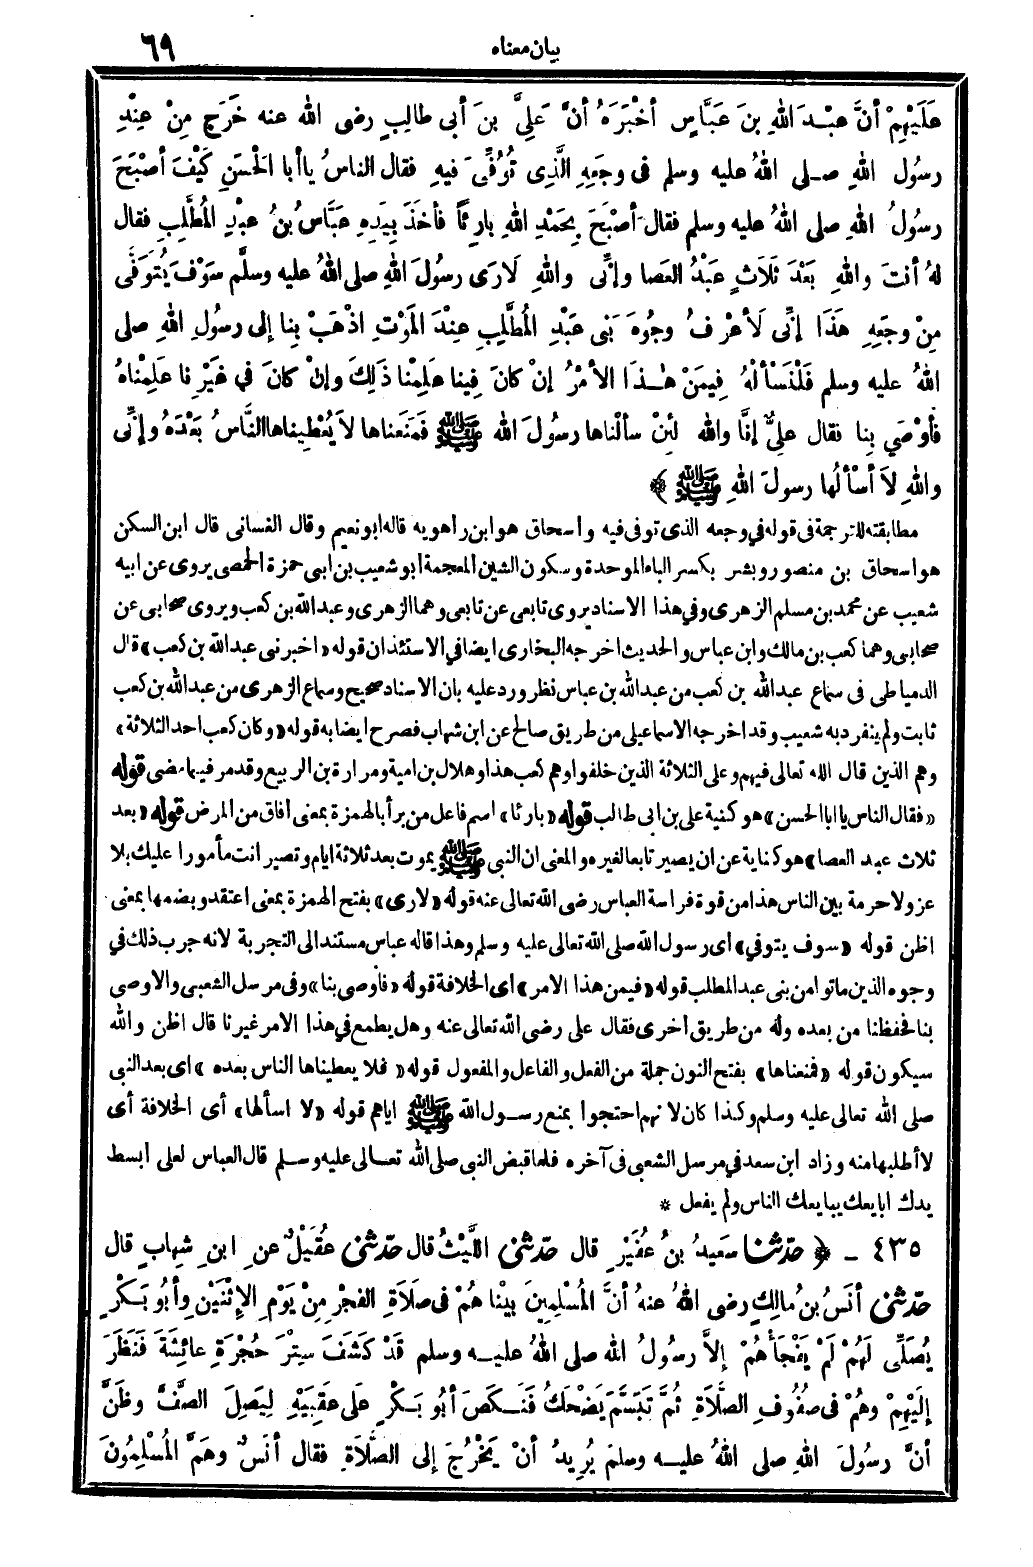 بيان معناه
٦٩
عَلَيْهِمْ أنَّ عبْدَ اللهِ بنَ عَبَّاسٍ أخْبَرَهُ أنَّ عَلِيَّ بنَ أبى طالِبٍ رضى الله عنه خَرَجَ مِنْ عِنْدِ
رسُولِ اللهِ صلى اللهُ عليه وسلم فى وجَعِهِ الَّذِى تُوُفِّىَ فيهِ فقال الناسُ ياأبا الحَسَنِ كَيْفَ أصْبَحَ
رسُولُ اللهِ صلى اللهُ عليه وسلم فقال أصْبَحَ بِحَمْدِ اللهِ بارِئًا فأخَذَ بِيَدِهِ عَبَّاسُ بنُ عبْدِ المُطَّلِبِ فقال
لهُ أنتَ واللهِ بَعْدَ ثَلَاثٍ عَبْدُ العَصا وإنِّى واللهِ لَارَى رسُولَ اللهِ صلى اللهُ عليه وسلَّم سَوْفَ يُتَوَفَّى
مِنْ وجَعِهِ هَذَا إنِّى لَأعْرِفُ وجُوهَ بَنى عبْدِ المُطَّلِبِ عِنْدَ المَوْتِ اذْهَبْ بِنا إلى رسُولِ اللهِ صلى
اللهُ عليه وسلم فَلْنَسْألْهُ فِيمَنْ هٰذَا الأمْرُ إنْ كانَ فِينا عَلِمْنا ذَلِكَ وإنْ كانَ في غيْرِنا عَلِمْناهُ
فأوْصَي بِنا فقال علِيٌّ إنَّا واللهِ لَئِنْ سألْناها رسُولَ الله ﷺ فَمَنَعَناها لاَ يُعْطِيناها النَّاسُ بَعْدَهُ وإنِّى
واللهِ لاَ أسْألُها رسولَ اللهِ ﷺ ﴾
مطابقته للترجمة فى قوله في وجعه الذى توفى فيه واسحاق هو ابن راهويه قاله ابو نعيم وقال الغسانى قال ابن السكن
هو اسحاق بن منصور وبشر بكسر الباء الموحدة وسكون الشين المعجمة ابو شعيب بن ابى حمزة الحمصى يروى عن ابيه
شعيب عن محمد بن مسلم الزهرى وفي هذا الاسناد يروى تابعى عن تابعى وهما الزهرى وعبد الله بن كعب ويروى صحابى عن
صحابى وهما كعب بن مالك وابن عباس والحديث اخرجه البخارى ايضا في الاستئذان قوله «اخبرنى عبد الله بن كعب» قال
الدمياطى فى سماع عبد الله بن كعب من عبد الله بن عباس نظر ورد عليه بان الاسناد صحيح وسماع الزهرى من عبد الله بن كعب
ثابت ولم ينفرد به شعيب وقد اخرجه الاسماعيلى من طريق صالح عن ابن شهاب فصرح ايضا به قوله «وكان كعب احد الثلاثة»
وهم الذين قال الله تعالى فيهم وعلى الثلاثة الذين خلفوا وهم كعب هذا وهلال بن امية ومرارة بن الربيع وقد مر فيما مضى قوله
«فقال الناس يا ابا الحسن» هو كنية على بن ابى طالب قوله «بارئا» اسم فاعل من برأ بالهمزة بمعنى أفاق من المرض قوله «بعد
ثلاث عبد العصا» هو كناية عن ان يصير تابعا لغيره والمعنى ان النبى ﷺ يموت بعد ثلاثة ايام وتصير انت مأمورا عليك بلا
عز ولا حرمة بين الناس هذا من قوة فراسة العباس رضى الله تعالى عنه قوله «لارى» بفتح الهمزة بمعنى اعتقد وبضمها بمعنى
اظن قوله «سوف يتوفي» اى رسول الله صلى الله تعالى عليه وسلم وهذا قاله عباس مستندا لى التجربة لانه جرب ذلك في
وجوه الذين ماتوا من بنى عبد المطلب قوله «فيمن هذا الامر» اى الخلافة قوله «فأوصى بنا» وفى مرسل الشعبى والا وصى
بنا فحفظنا من بعده وله من طريق أخرى فقال على رضى الله تعالى عنه وهل يطمع في هذا الامر غيرنا قال اظن والله
سيكون قوله «فمنعناها» بفتح النون جملة من الفعل والفاعل والمفعول قوله «فلا يعطيناها الناس بعده» اى بعد النبى
صلى الله تعالى عليه وسلم وكذا كان لانهم احتجوا بمنع رسول الله ﷺ اياهم قوله «لا اسألها» أى الخلافة أى
لا أطلبها منه وزاد ابن سعد في مرسل الشعبى فى آخره فلما قبض النبى صلى الله تعالى عليه وسلم قال العباس لعلى ابسط
يدك ابايعك يبايعك الناس ولم يفعل *
٤٣٥ - ﴿ حدّثنا سَعِيدُ بنُ عُفَيْرٍ قال حدّثنى اللَّيْثُ قال حدّثنى عُقَيْلٌ عنِ ابنِ شِهابٍ قال
حدّثنى أنَسُ بنُ مالِكٍ رضى اللهُ عنهُ أنَّ المُسْلِمِينَ بيْنا هُمْ فى صَلَاةِ الفَجْرِ مِنْ يَوْمِ الإِثْنَيْنِ وأبُو بَكْرٍ
يُصَلِّى لَهُمْ لَمْ يَفْجَأْهُمْ إلاَّ رسولُ الله صلى اللهُ عليه وسلم قَدْ كَشَفَ سِتْرَ حُجْرَةِ عائِشَةَ فَنَظَرَ
إلَيْهِمْ وهُمْ فى صُفُوفِ الصَّلَاةِ ثُمَّ تَبَسَّمَ يَضْحَكُ فَنَكَصَ أبُو بَكْرٍ عَلَى عَقِبَيْهِ لِيَصِلَ الصَّفَّ وظَنَّ
أنَّ رسُولَ اللهِ صلى اللهُ عليه وسلم يُرِيدُ أنْ يَخْرُجَ إلى الصَّلَاةِ فقال أنَسٌ وهَمَّ المُسْلِمُونَ